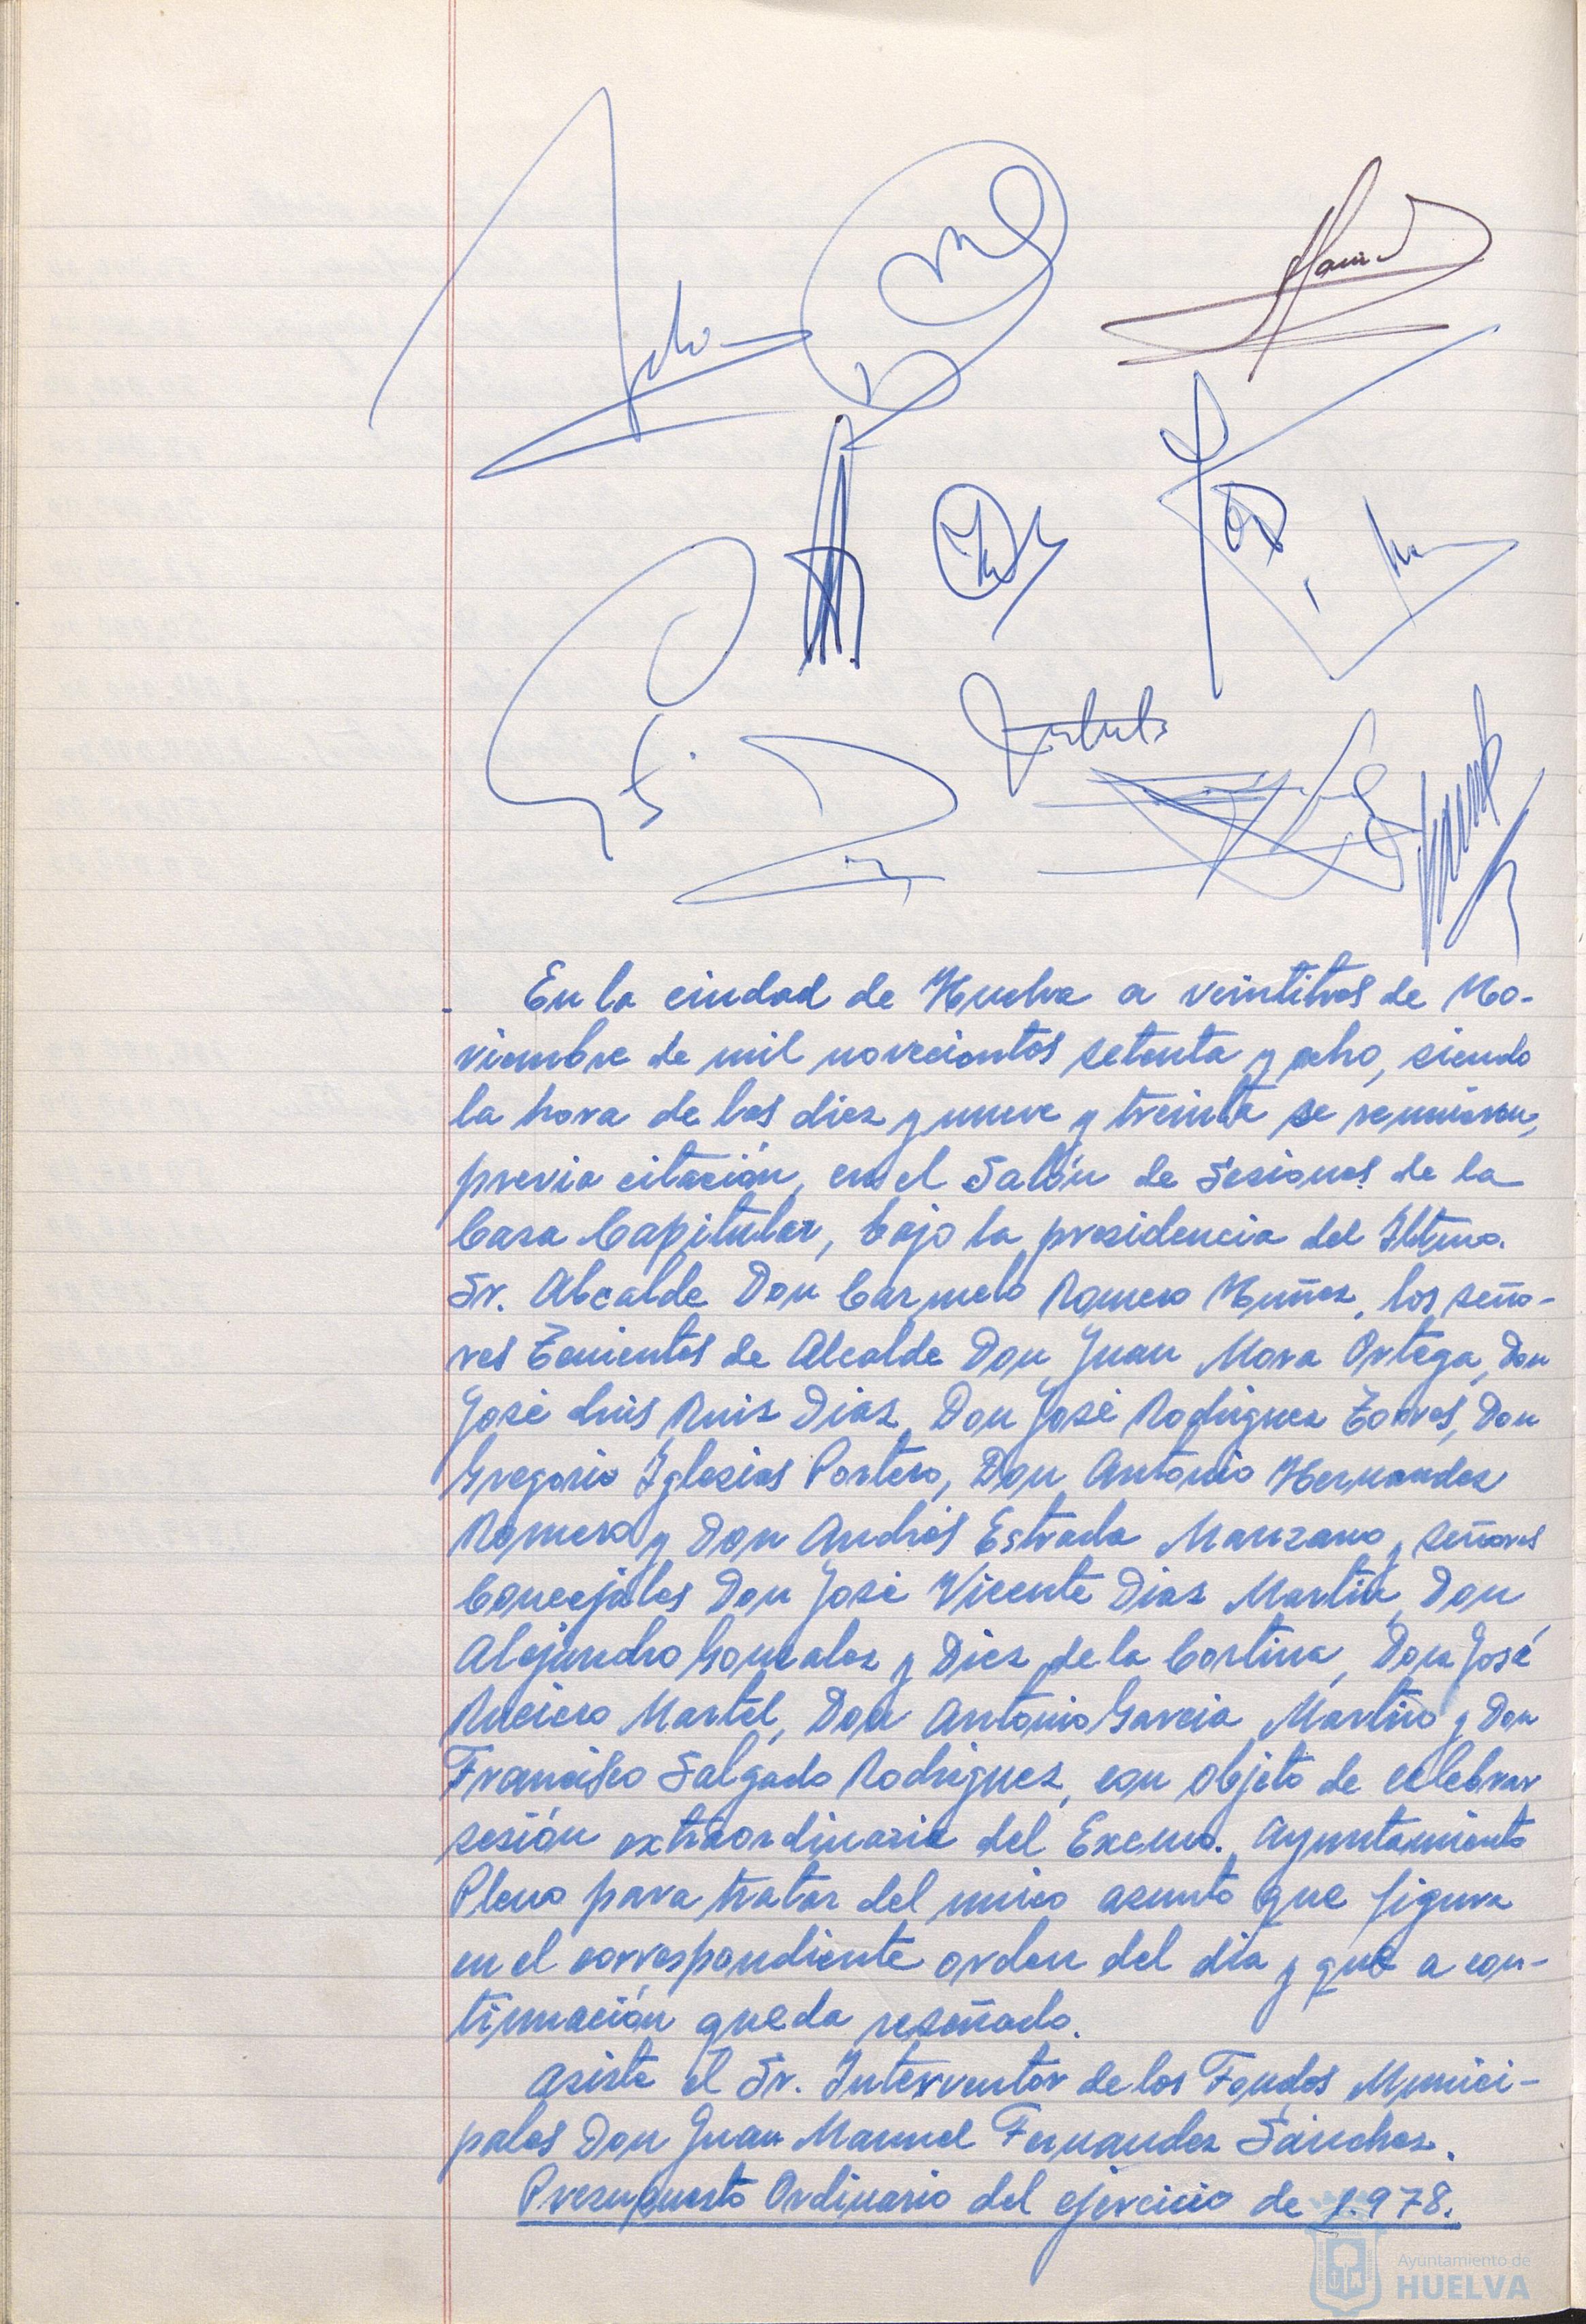 En la ciudad de Huelva a veintitres de No-
viembre de mil novecientos setenta y ocho, siendo
la hora de las diez y nueve y treinta se reunieron,
previa citación, en el Salón de Sesiones de la
Casa Capitular, bajo la presidencia del Iltmo.
Sr. Alcalde Don Carmelo Romero Muñoz, los seño-
res Tenientes de Alcalde Don Juan Mora Ortega, Don
José Luis Ruiz Diaz, Don José Rodriguez Torres, Don
Gregorio Iglesias Portero, Don Antonio Hernandez
Romero y Don Andrés Estrada Manzano y señores
Concejales Don José Vicente Diaz Martin, Don
Alejandro Gonzalez y Diez de la Cortina, Don José
Ruciero Martel, Don Antonio Garcia Martino y Don
Francisco Salgado Rodriguez, con objeto de celebrar
sesión extraordinaria del Excmo. Ayuntamiento
Pleno para tratar del unico asunto que figura
en el correspondiente orden del dia y que a con-
tinuación queda reseñado.
Asiste el Sr. Interventor de los Fondos Munici-
pales Don Juan Manuel Fernandez Sánchez.
Presupuesto Ordinario del ejercicio de 1.978.
Ayuntamiento de
HUELVA